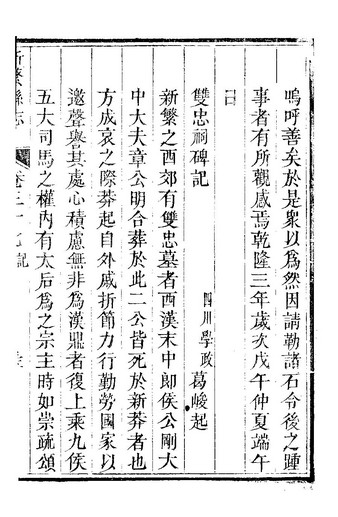 嗚呼善矣於是衆以爲然因請勒諸石令後之踵
事者有所觀感焉乾隆三年歲次戊午仲夏端午
日
雙忠祠碑記
四川學政葛峻起
新繁之西郊有雙忠墓者西漢末中郎侯公剛大
中大夫章公明合葬於此二公皆死於新莽者也
方成哀之際莽起自外戚折節力行勤勞國家以
邀聲譽其處心積慮無非爲漢鼎者復上乘九侯
五大司馬之權內有太后爲之宗主時如崇疏頌
新繁縣志
卷三十七記